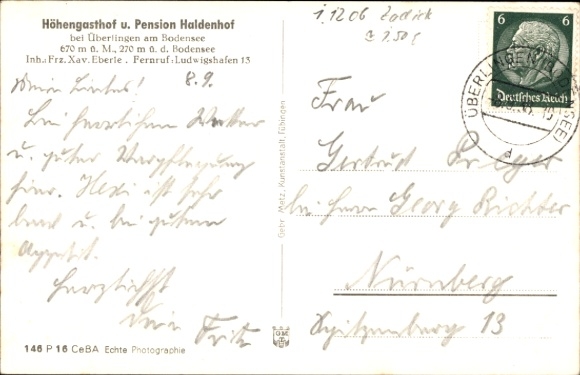 Höhengasthof u. Pension Haldenhof
bei Überlingen am Bodensee
670 m ü. M., 270 m ü. d. Bodensee
Inh.: Frz. Xav. Eberle . Fernruf: Ludwigshafen 13
Mein Liebes! 8.9.
Bei herrlichem Wetter
u. guter Verpflegung
hier. Hexi ist sehr
u. bei gutem
Appetit.
Herzlichst
Dein Fritz
146 P 16 CeBA Echte Photographie
Gebr. Metz, Kunstanstalt, Tübingen
1.12.06
1.50
6 6
Deutsches Reich
ÜBERLINGEN
Frau
Gertrud Prieger
bei Herrn Georg Richter
Nürnberg
Spitzenberg 13